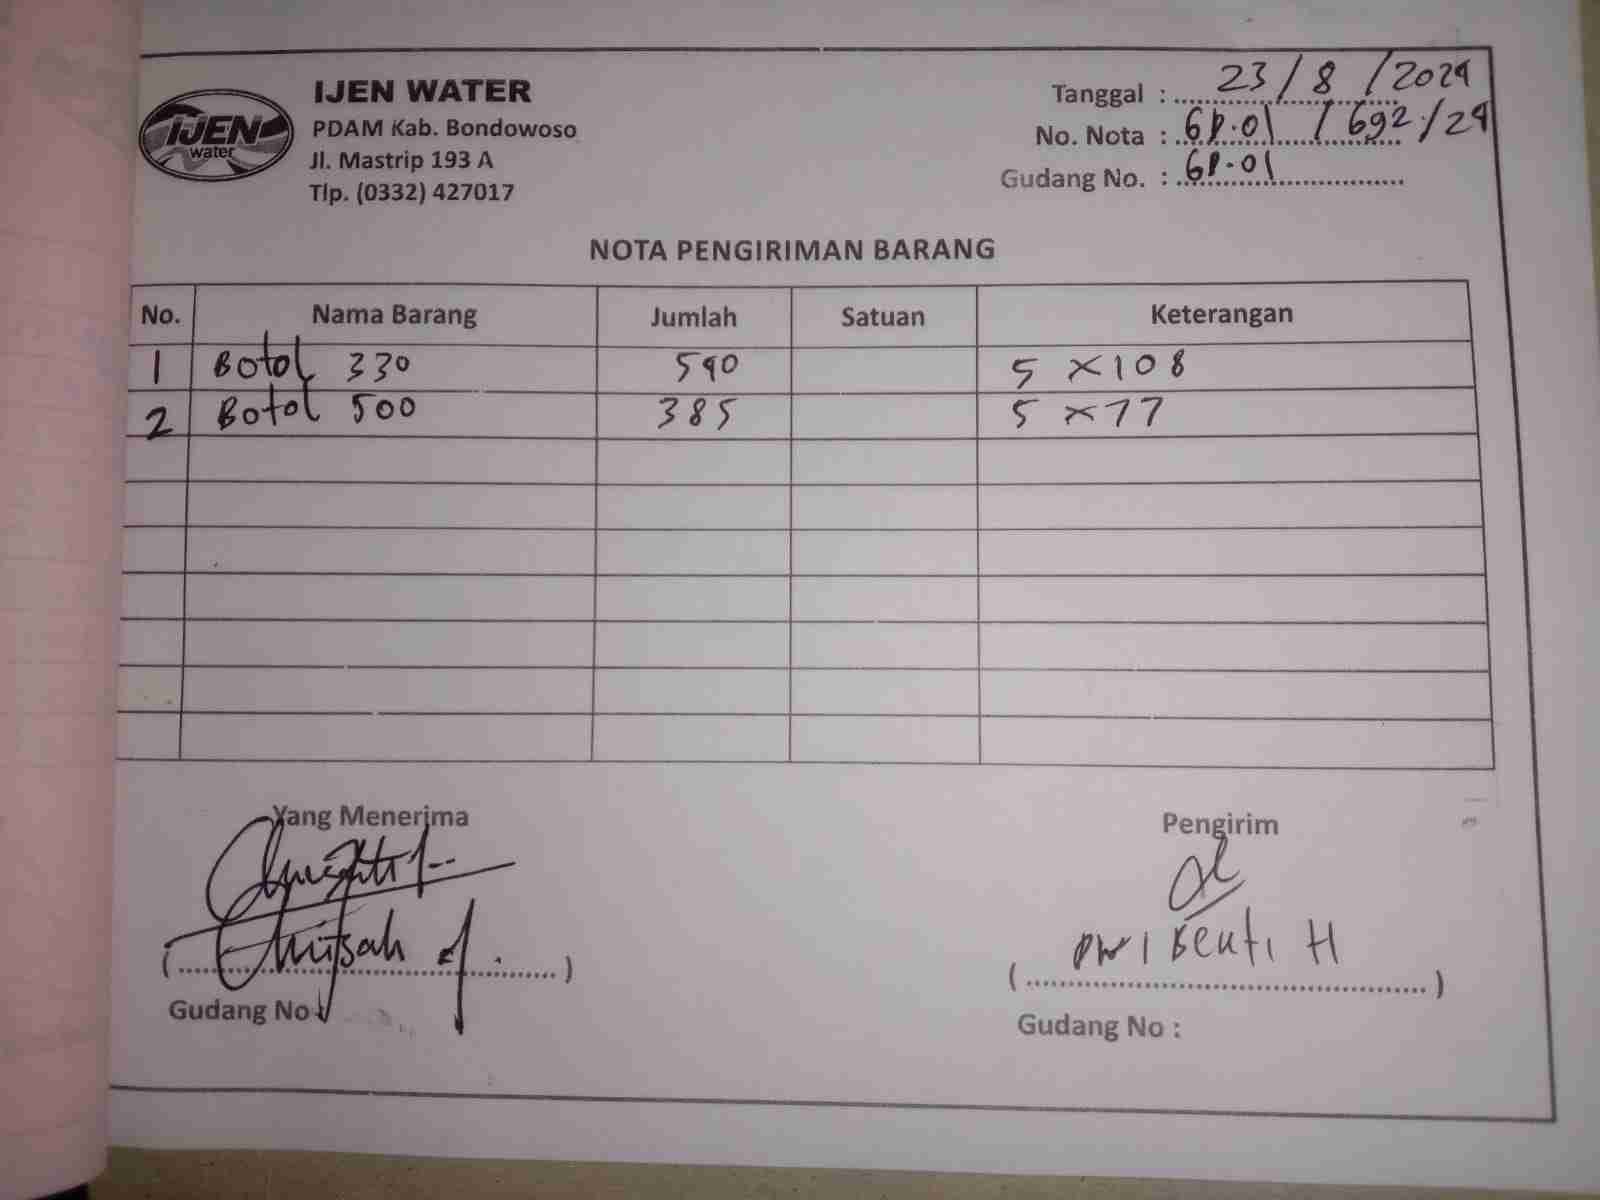 IJEN
water
IJEN WATER
PDAM Kab. Bondowoso
Jl. Mastrip 193 A
Tlp. (0332) 427017
Tanggal : 23 / 8 / 2024
No. Nota : GD.01 / 692 / 24
Gudang No. : GD.01
NOTA PENGIRIMAN BARANG
No. Nama Barang Jumlah Satuan Keterangan
1 Botol 330 540 5 x 108
2 Botol 500 385 5 x 77
Yang Menerima Pengirim
Dwi Benti H
Gudang No Gudang No :